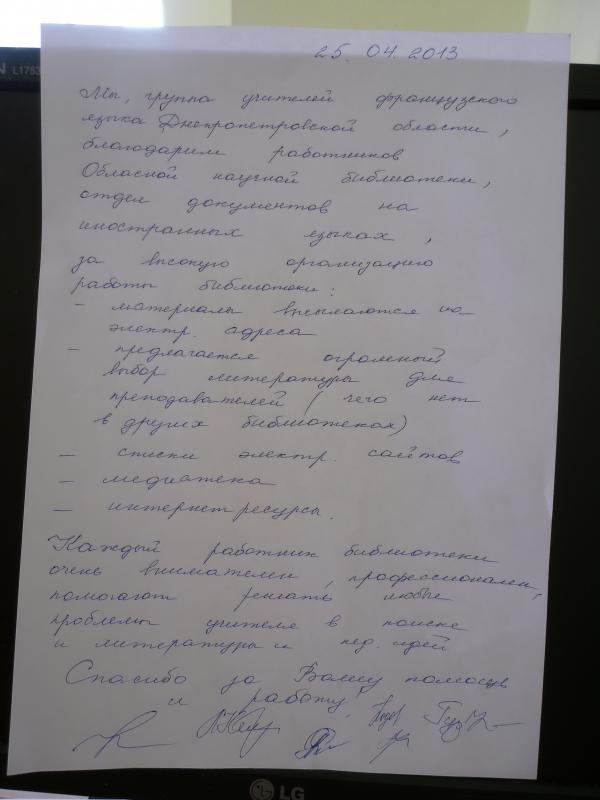 25. 04. 2013
Мы, группа учителей французского
языка Днепропетровской области,
благодарим работников
Обласной научной библиотеки,
отдел документов на
иностранных языках,
за высокую организацию
работы библиотеки:
– материалы высылаются на
электр. адреса
– предлагается огромный
выбор литературы для
преподавателей (чего нет
в других библиотеках)
– списки электр. сайтов
– медиатека
– интернет ресурсы.
Каждый работник библиотеки
очень внимателен, профессионален,
помогают решать любые
проблемы учителя в поиске
и литературы и пед. идей
Спасибо за Вашу помощь
и работу!
L1753
LG